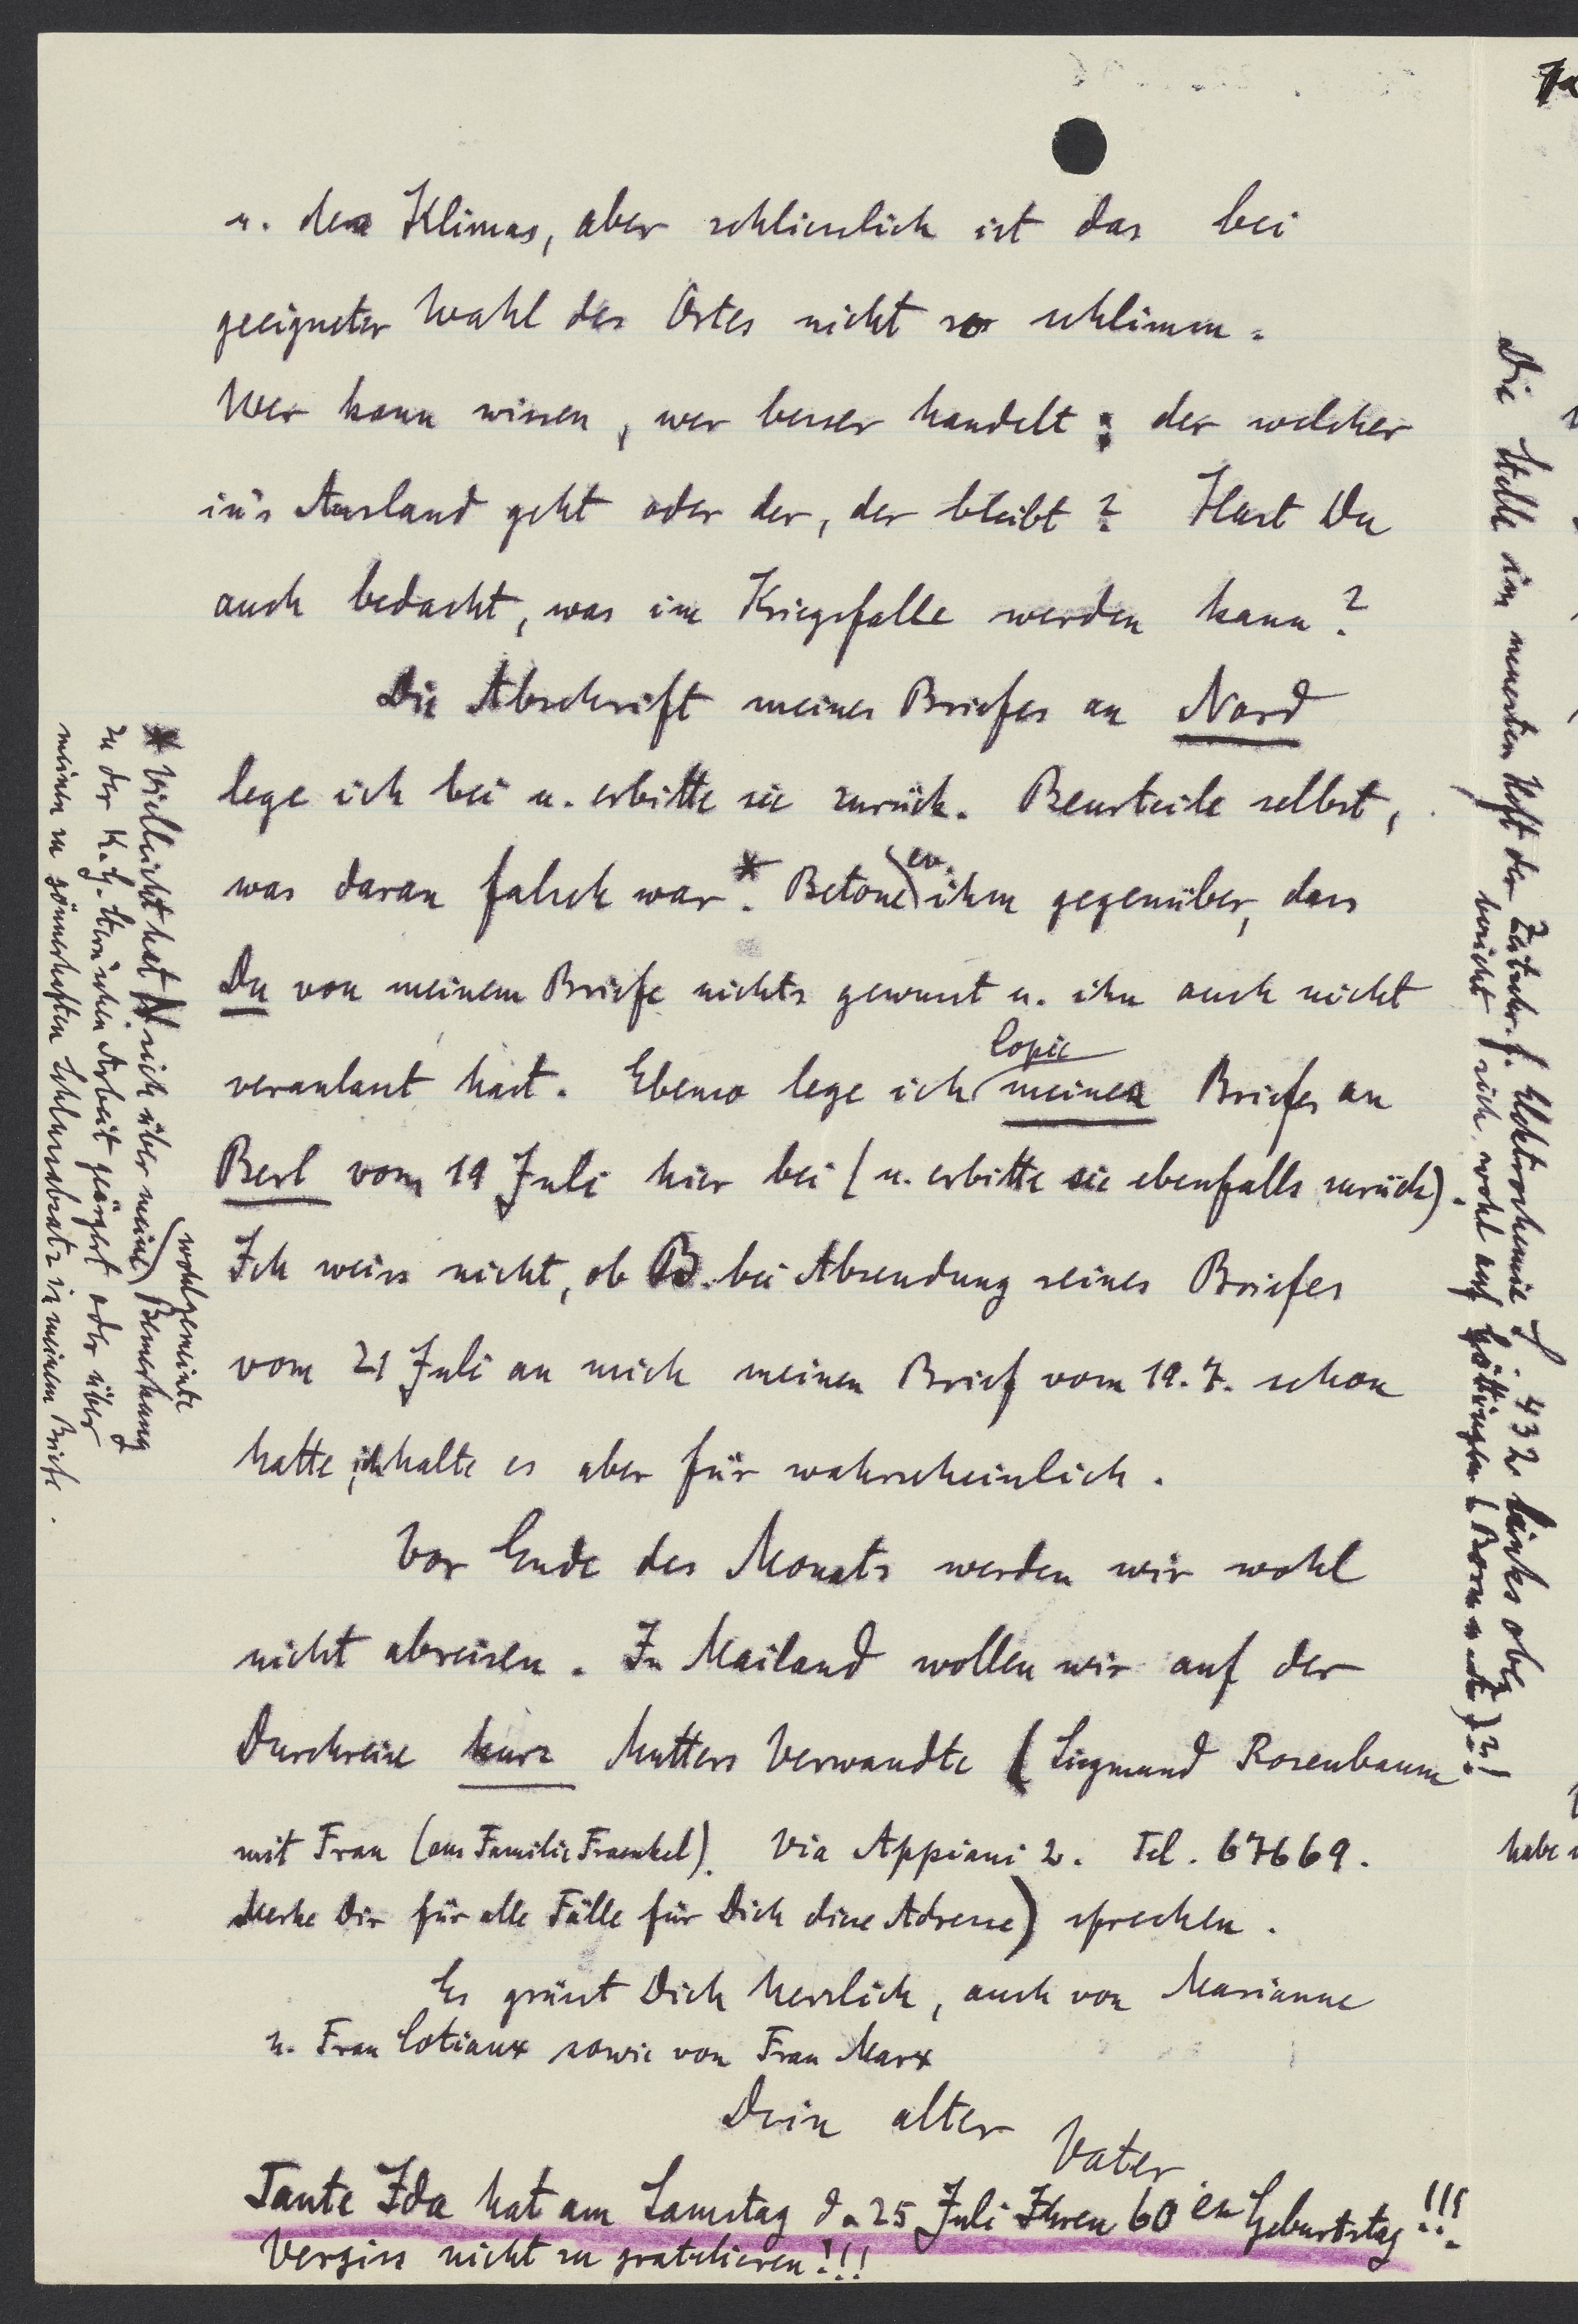 u. des Klimas, aber schliesslich ist das bei
geeigneter Wahl des Ortes nicht so schlimm.
Wer kann wissen, wer besser handelt: der welcher
in's Ausland geht oder der, der bleibt? Hast Du
auch bedacht, was im Kriegsfalle werden kann?
Die Abschrift meines Briefes an Nord
lege ich bei u. erbitte sie zurück. Beurteile selbst,
was daran falsch war.* Betone ev. ihm gegenüber, dass
Du von meinem Briefe nichts gewusst u. ihn auch nicht
veranlasst hast. Ebenso lege ich Copie meines Briefes an
Berl vom 19 Juli hier bei (u. erbitte sie ebenfalls zurück).
Ich weiss nicht, ob B. bei Absendung seines Briefes
vom 21 Juli an mich meinen Brief vom 19.7. schon
hatte, ich halte es aber für wahrscheinlich.
Vor Ende des Monats werden wir wohl
nicht abreisen. In Mailand wollen wir auf der
Durchreise kurz Mutters Verwandte (Siegmund Rosenbaum
mit Frau (aus Familie Fraenkel). Via Appiani 2. Tel. 67669.
Merke Dir für alle Fälle für Dich diese Adresse) sprechen.
Es grüsst Dich herzlich, auch von Marianne
u. Frau Cotiaux sowie von Frau Marx
Dein alter
Vater
Tante Ida hat am Samstag d. 25 Juli Ihren 60 en Geburtstag!!!
Vergiss nicht zu gratulieren!!!
* Vielleicht hat N sich über meine wohlgemeinte Bemerkung
zu der K.G. Stern'schen Arbeit geärgert oder über
meinen zu gönnerhaften Schlussabsatz in meinem Briefe.
Die Stelle im neuesten Heft der Zeitschr. f. Elektrochemie S. 432 links oben
bezieht sich wohl auf Göttingen (Born u.)?!
habe